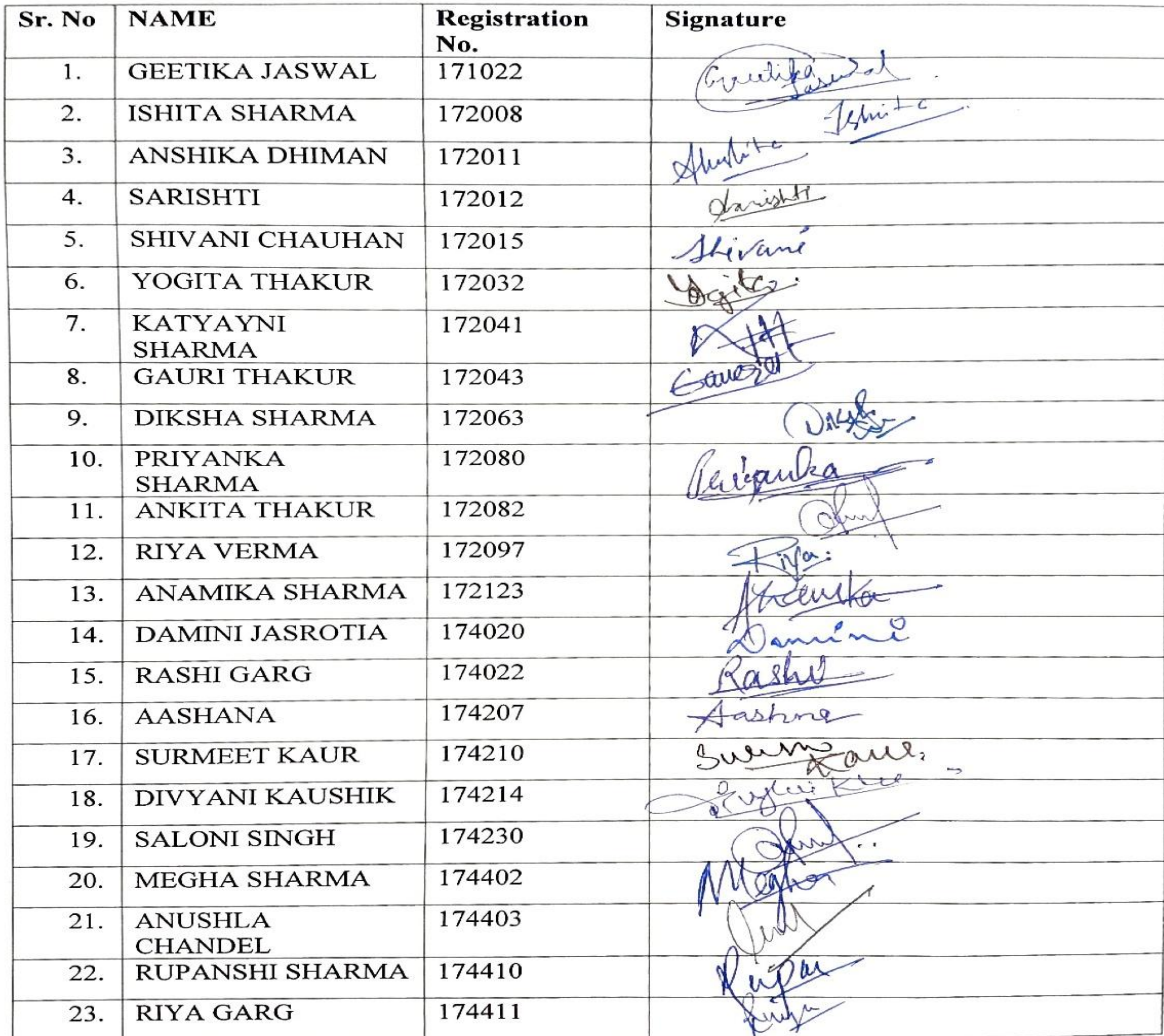 Sr. No NAME Registration No. Signature
1. GEETIKA JASWAL 171022 Geetika Jaswal
2. ISHITA SHARMA 172008 Ishita
3. ANSHIKA DHIMAN 172011
4. SARISHTI 172012 Sarishti
5. SHIVANI CHAUHAN 172015 Shivani
6. YOGITA THAKUR 172032 Yogita
7. KATYAYNI SHARMA 172041
8. GAURI THAKUR 172043
9. DIKSHA SHARMA 172063
10. PRIYANKA SHARMA 172080 Priyanka
11. ANKITA THAKUR 172082
12. RIYA VERMA 172097 Riya
13. ANAMIKA SHARMA 172123
14. DAMINI JASROTIA 174020 Damini
15. RASHI GARG 174022 Rashi
16. AASHANA 174207 Aashna
17. SURMEET KAUR 174210
18. DIVYANI KAUSHIK 174214
19. SALONI SINGH 174230
20. MEGHA SHARMA 174402 Megha
21. ANUSHLA CHANDEL 174403
22. RUPANSHI SHARMA 174410
23. RIYA GARG 174411 Riya